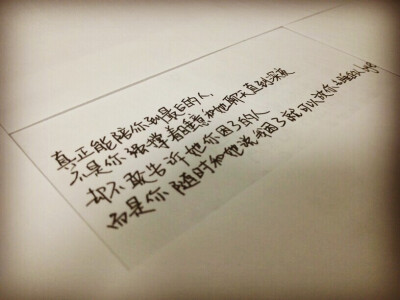 真正能陪你到最后的人,
不是你强撑着睡意和他聊天直到深夜
却不敢告诉她你困了的人
而是你随时和他说我困了就可以放你去睡的